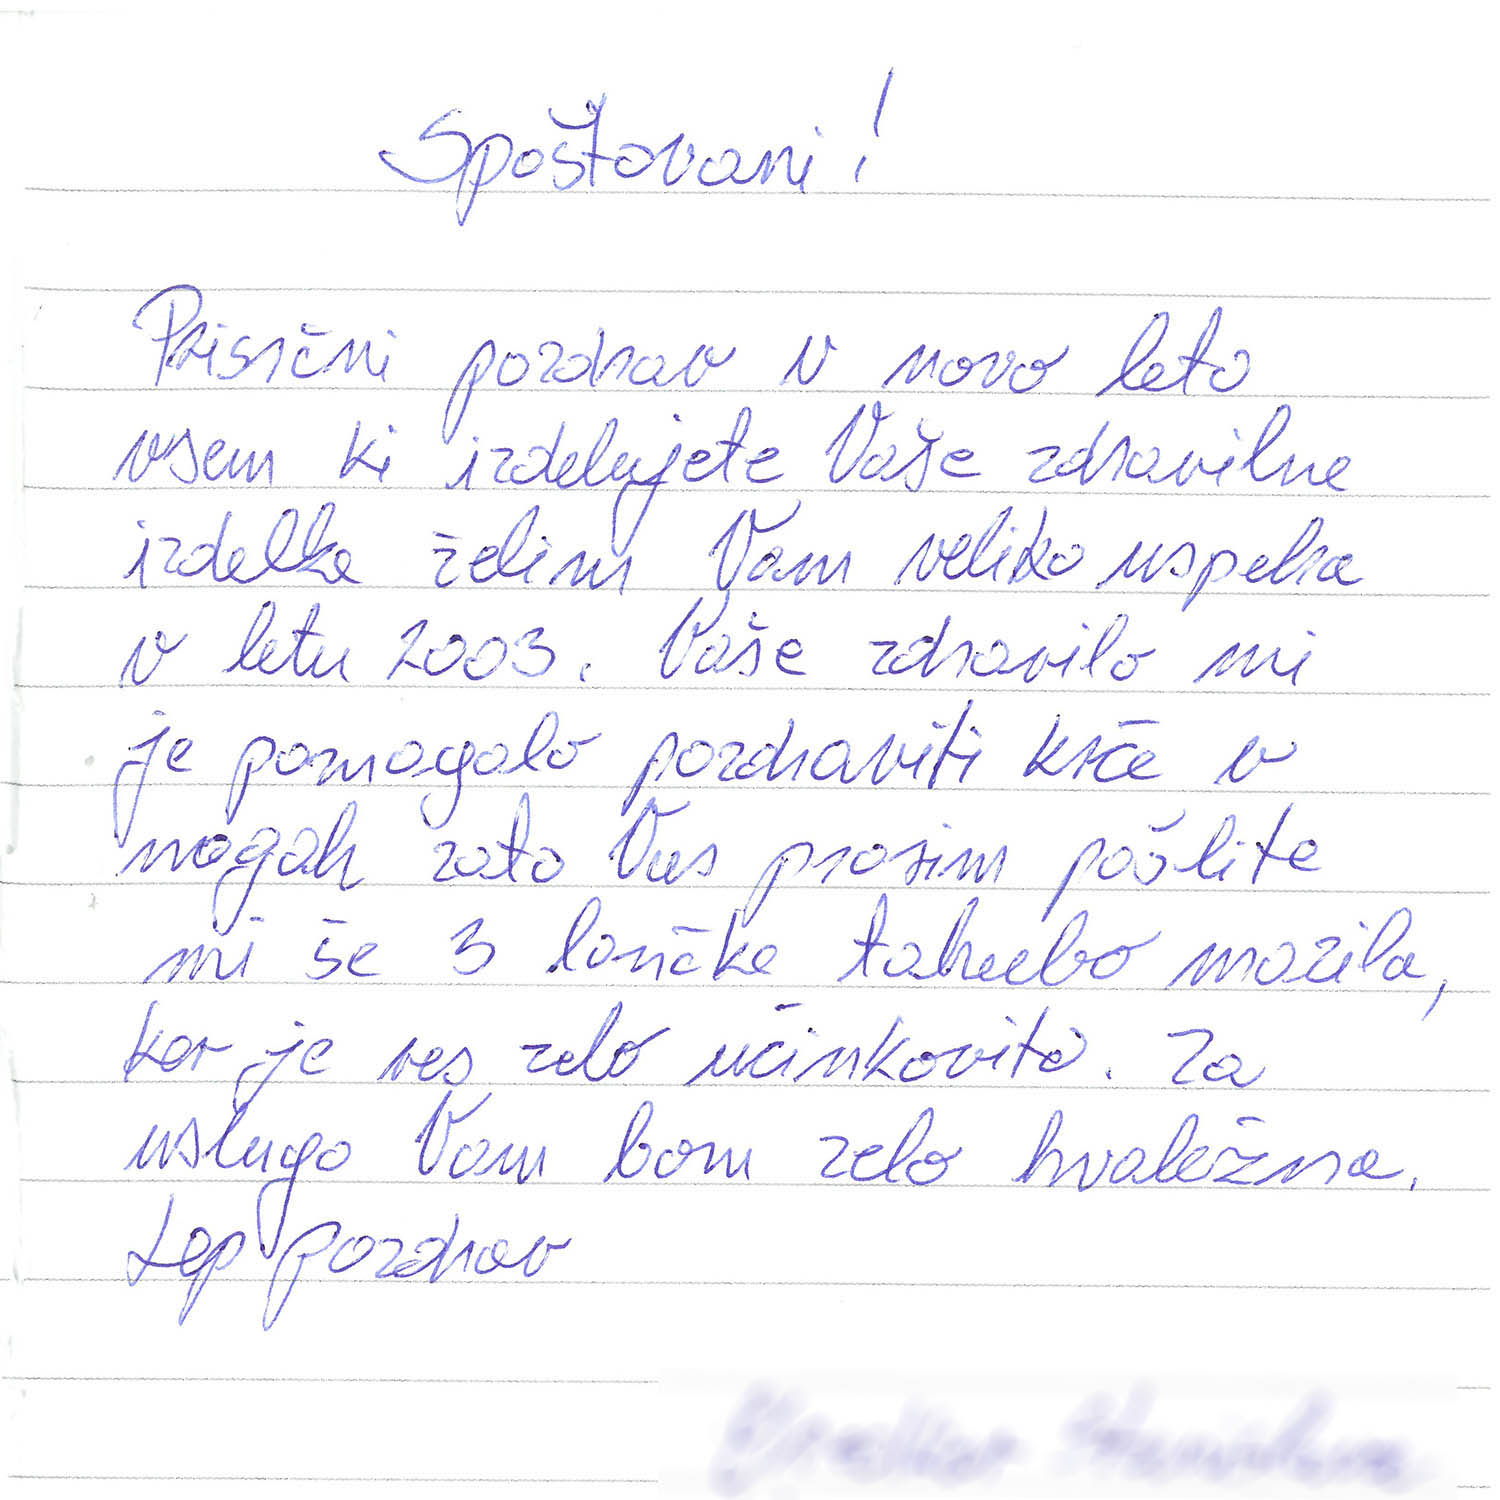 Spoštovani!
Prisrčni pozdrav v novo leto
vsem ki izdelujete Vaše zdravilne
izdelke želim Vam veliko uspeha
v letu 2003. Vaše zdravilo mi
je pomagalo pozdraviti krče v
nogah zato Vas prosim pošlite
mi še 3 lončke taheebo mazila,
ker je res zelo učinkovito. Za
uslugo Vam bom zelo hvaležna.
Lep pozdrav